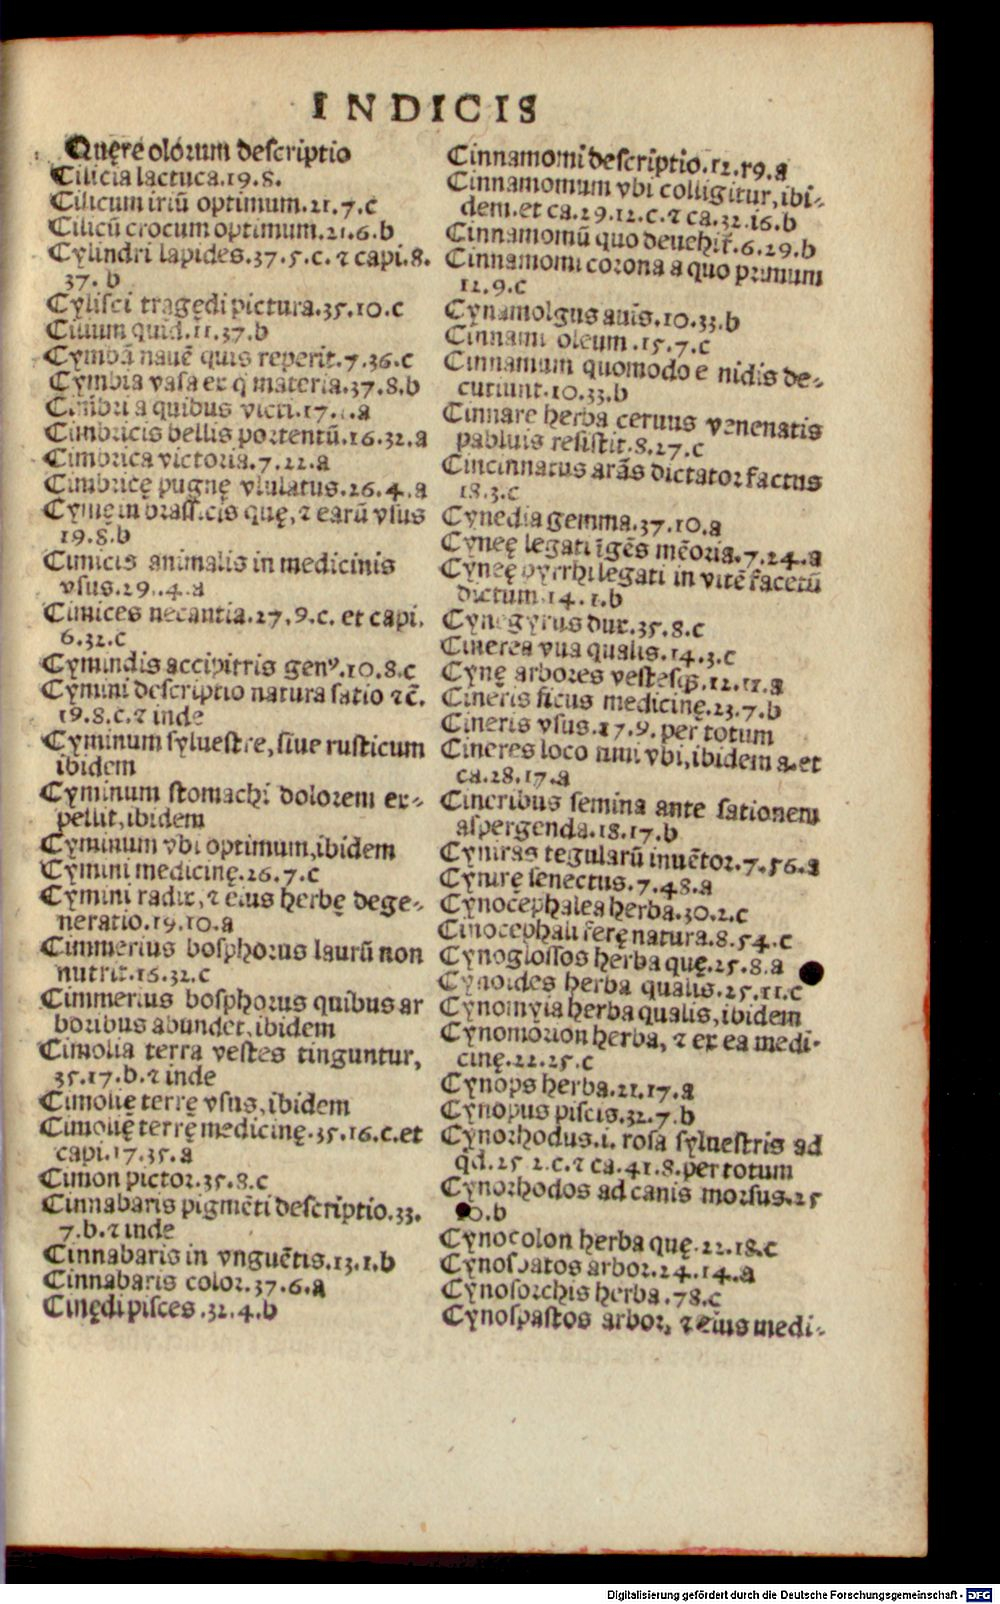 INDICIS
Quęre olorum descriptio
Cilicia lactuca.19.8.
Cilicum iriū optimum.21.7.c
Ciliciū crocum optimum.21.6.b
Cylindri lapides.37.5.c.⁊ capi.8.
37.b
Cylisci tragędi pictura.35.10.c
Cilium quid.11.37.b
Cymbā nauē quis reperit.7.36.c
Cymbia vasa ex q̄ materia.37.8.b
Cimbri a quibus victi.17..a
Cimbricis bellis portentū.16.32.a
Cimbrica victoria.7.22.a
Cimbricę pugnę vlulatus.26.4.a
Cymę in brassicis quę,⁊ earū vsus
19.8.b
Cimicis animalis in medicinis
vsus.29.4.a
Cimices necantia.27.9.c. et capi.
6.32.c
Cymindis accipitris genꝰ.10.8.c
Cymini descriptio natura satio ⁊c̄.
19.8.c.⁊ inde
Cyminum syluestre, siue rusticum
ibidem
Cyminum stomachi dolorem ex-
pellit,ibidem
Cyminum vbi optimum,ibidem
Cymini medicinę.26.7.c
Cymini radix,⁊ eius herbę dege-
neratio.19.10.a
Cimmerius bosphorus laurū non
nutrit.16.32.c
Cimmerius bosphorus quibus ar
boribus abundet,ibidem
Cimolia terra vestes tinguntur,
35.17.b.⁊ inde
Cimolię terrę vsus,ibidem
Cimolię terrę medicinę.35.16.c.et
capi.17.35.a
Cimon pictor.35.8.c
Cinnabaris pigmēti descriptio.33.
7.b.⁊ inde
Cinnabaris in vnguētis.13.1.b
Cinnabaris color.37.6.a
Cinędi pisces.32.4.b
Cinnamomi descriptio.12.19.a
Cinnamomum vbi colligitur,ibi-
dem.et ca.29.12.c.⁊ ca.32.16.b
Cinnamomū quo deuehit̄.6.29.b
Cinnamomi corona a quo primum
12.9.c
Cynamolgus auis.10.33.b
Cinnami oleum.15.7.c
Cinnamum quomodo e nidis de-
cutiunt.10.33.b
Cinnare herba ceruus venenatis
pabluis resistit.8.27.c
Cincinnatus arās dictator factus
18.3.c
Cynedia gemma.37.10.a
Cyneę legati īgēs mēoria.7.24.a
Cyneę pyrrhi legati in vitē facetū
dictum.14.1.b
Cynegyrus dux.35.8.c
Cinerea vua qualis.14.3.c
Cynę arbores vestesqȝ.12.11.a
Cineris ficus medicinę.23.7.b
Cineris vsus.17.9.per totum
Cineres loco fimi vbi,ibidem a.et
ca.28.17.a
Cineribus semina ante sationem
aspergenda.18.17.b
Cyniras tegularū inuētor.7.56.a
Cynirę senectus.7.48.a
Cynocephalea herba.30.2.c
Cinocephali ferę natura.8.54.c
Cynoglossos herba quę.25.8.a
Cynoides herba qualis.25.11.c
Cynomyia herba qualis,ibidem
Cynomorion herba, ⁊ ex ea medi-
cinę.22.25.c
Cynops herba.21.17.a
Cynopus piscis.32.7.b
Cynorhodus.i. rosa syluestris ad
qd.25 2.c.⁊ ca.41.8.per totum
Cynorhodos ad canis morsus.25
.b
Cynocolon herba quę.22.18.c
Cynosbatos arbor.24.14.a
Cynosorchis herba.78.c
Cynospastos arbor, ⁊ eius medi-
Digitalisierung gefördert durch die Deutsche Forschungsgemeinschaft - DFG